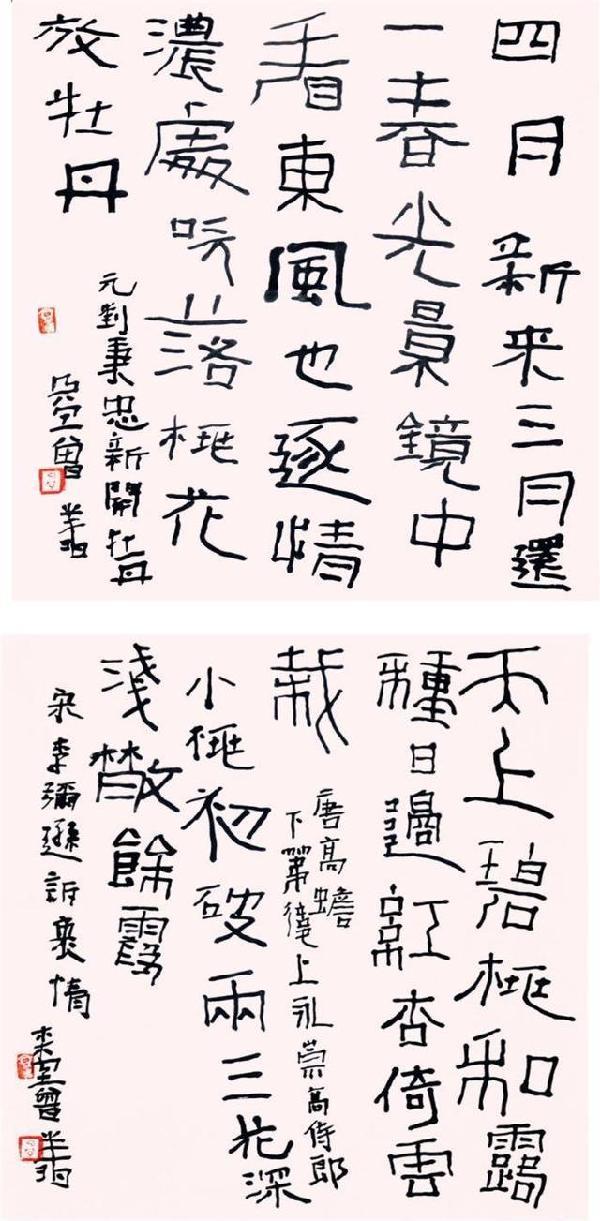 四月新来三月還
一春光景鏡中
看東風也逐情
濃處吹落桃花
放牡丹
元劉秉忠新開牡丹
曾
天上碧桃和露
種日邊紅杏倚雲
栽
唐高蟾
下第後上永崇高侍郎
小桃初破兩三花深
淺散餘霞
宋李彌遜訴衷情
曾